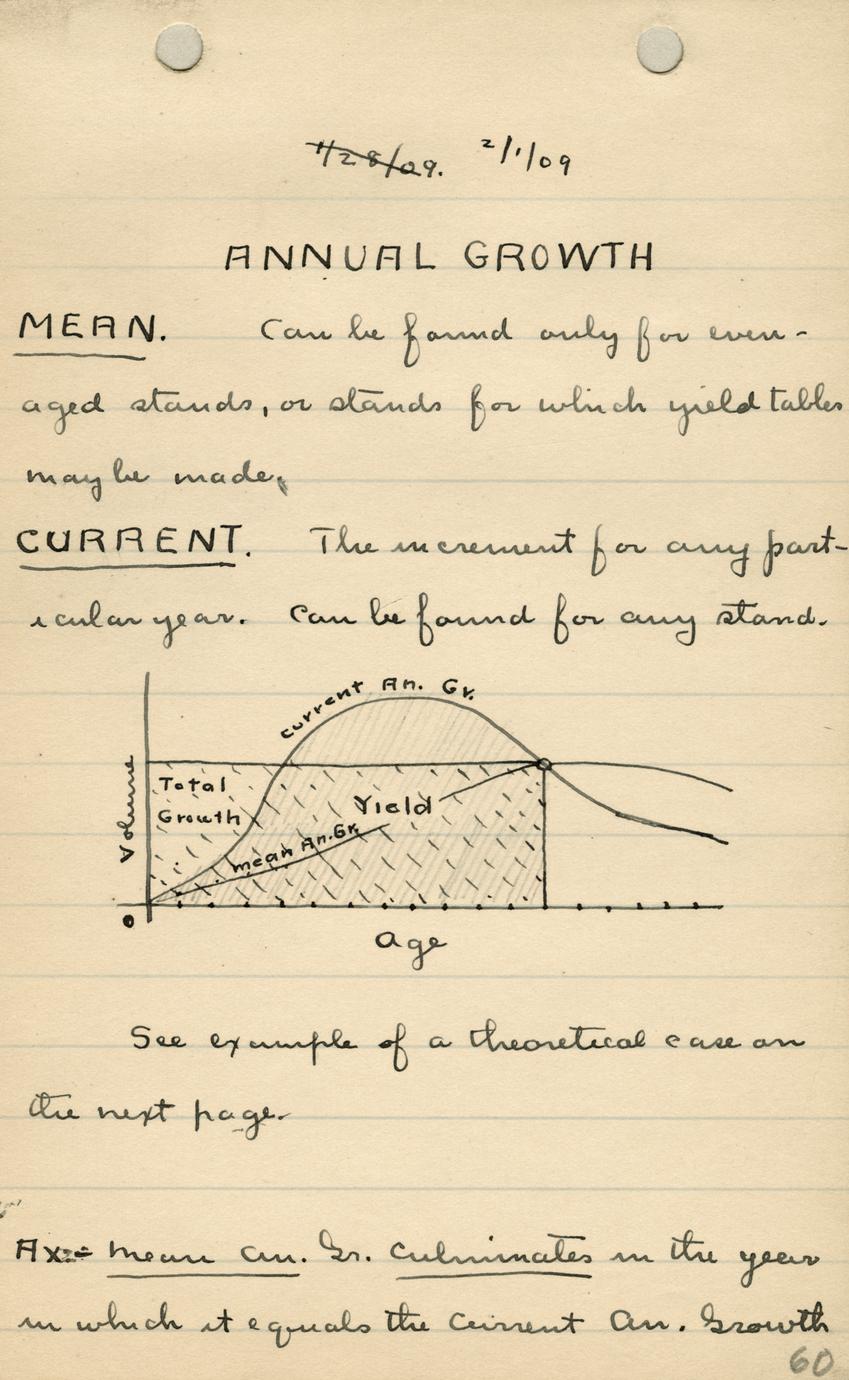 1/28/09. 2/1/09
ANNUAL GROWTH
MEAN. Can be found only for even-
aged stands, or stands for which yield tables
may be made.
CURRENT. The increment for any part-
icular year. Can be found for any stand.
current An. Gr.
Total
Growth
Yield
mean An. Gr.
Volume
0
Age
See example of a theoretical case on
the next page.
Ax:- Mean an. Gr. culminates in the year
in which it equals the Current An. Growth
60